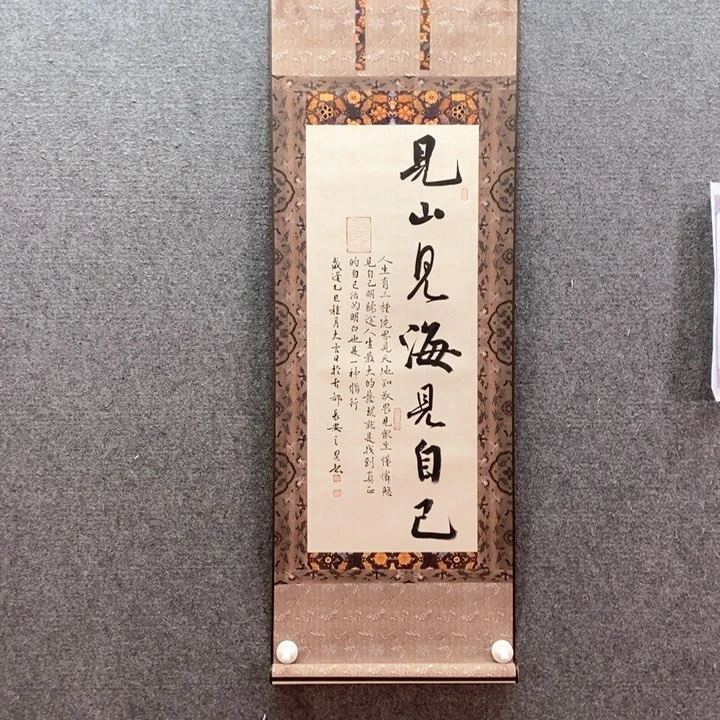 見山見海見自己
人生有三種境界見天地知敬畏見眾生懂憐憫
見自己明歸途人生最大的發現就是找到真正
的自己活的明白也是一种修行
歲達乙巳桂月大吉日於古都長安